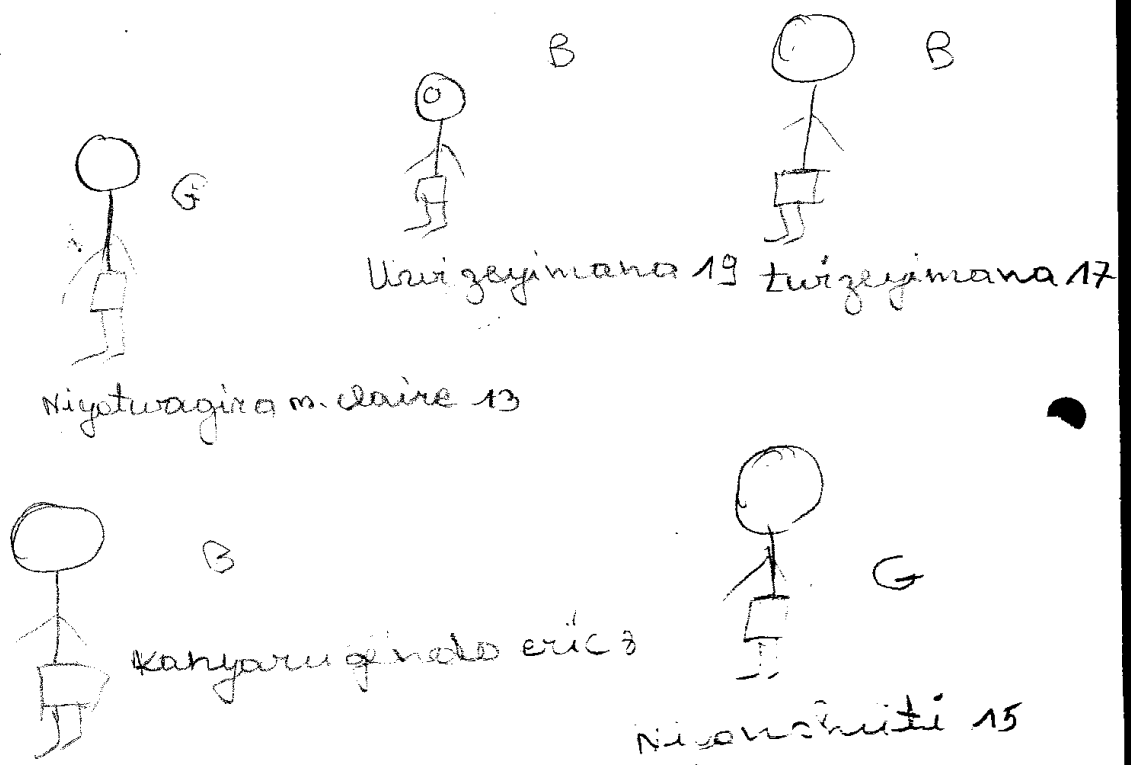 B B
G
Uwizeyimana 19 twizeyimana 17
Niyotwagira m. claire 13
B
G
Kanyarugendo eric 3
15